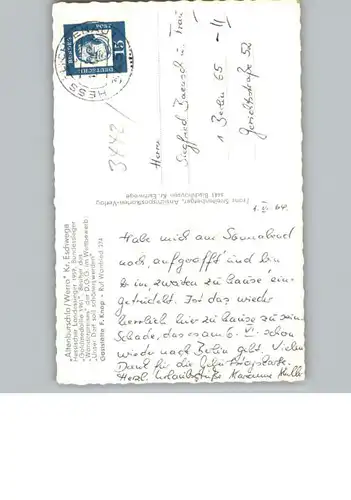 "Altenburschla/Werra" Kr. Eschwege
Hessischer Landessieger 1959, Bundessieger
Goldmedaille 1961, Besitzer des
Wanderpreises der D.L.G. im Wettbewerb:
"Unser Dorf soll schöner werden"
Gaststätte F. Knop - Ruf Wanfried 274
Franz Streitenberger, Ansichtspostkarten-Verlag
3441 Bischhausen Kr. Eschwege
DEUTSCHE
15
3442
Herrn
Siegfried u. Frau
1 Berlin 65
Gerichtstraße 52
Habe mich am Sonnabend
noch aufgerafft und bin
im "zweiten zu Hause" ein-
getrudelt. Ist das wieder
herrlich hier zu Hause zu sein.
Schade, das es am 6. VI. schon
wieder nach Berlin geht. Vielen
Dank für die
Herzl. Urlaubsgrüße Marianne